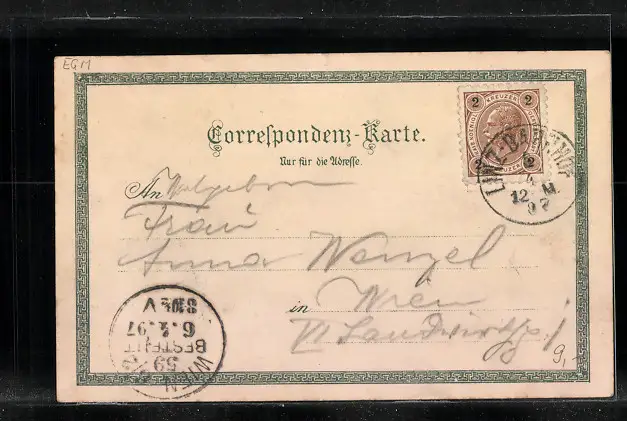 EGM
2 KREUZER 2
2 KREUZER 2
Correspondenz-Karte.
Nur für die Adresse.
LINZ-BAHNHOF
4
12. M.
97
An Wohlgeboren
Frau
Anna Wenzel
in Wien
VI
WIEN
59
BESTELLT
6.4.97
9,-